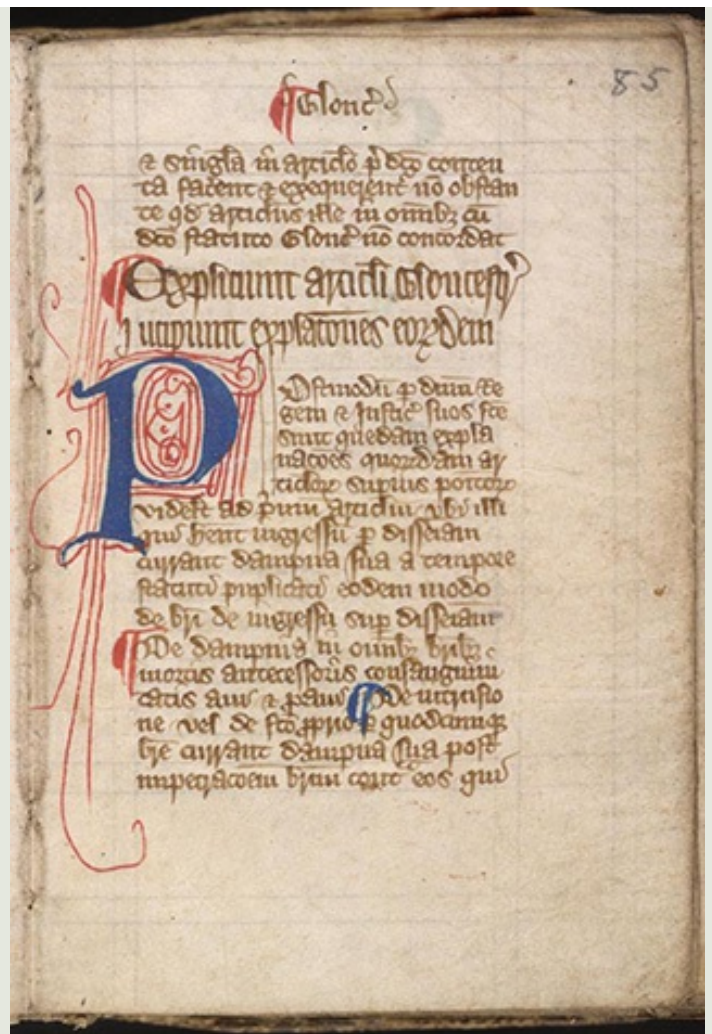 85
¶ Glonc̄
& singl̄a in articl̄o p̄dc̄o conten
ta facent & exequerent᷑ nō obstan
te qd̄ articlus ille in om̄ibꝫ cū
dc̄o statuto Glonc̄ nō concordat
Expliciunt articl̄i Gloucestr̄
Incipiunt explac̄ōnes eorꝫdem
Postmodū p̄ dnm̄ Re
gem & Justic̄ suos fc̄e
sunt quedam expla
nac̄oes quorꝫdam ar
ticl̄orꝫ sup̄ius
videlꝫ ad p̄mū articlm̄ vbi illi
qui h̄ent ingressū ꝑ disseīam
currant dampna sua a tempore
statuti puplicati eodem modo
de br̄i de ingressu sup̄ disseīam
¶ De dampnis in om̄ibꝫ br̄ibꝫ
mortis antecessoris consanguini
tatis aui & ꝓaui ¶ De intrusio
ne vel de fc̄o ꝓprio ꝑ quodcumqꝫ
br̄e currant dampna sua post
impetrac̄oem br̄ium cont᷑ eos qui